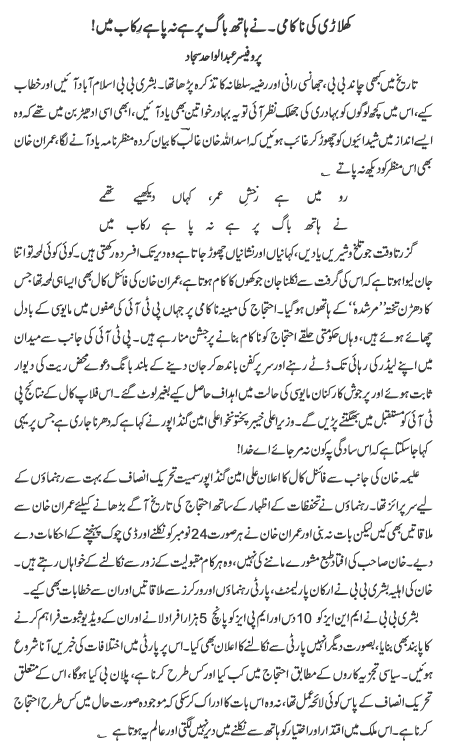 کھلاڑی کی ناکامی۔ نے ہاتھ باگ پر ہے نہ پا ہے رکاب میں!
پروفیسر عبدالواحد سجاد
تاریخ میں کبھی چاند بی بی، جھانسی رانی اور رضیہ سلطانہ کا تذکرہ پڑھا تھا۔ بشریٰ بی بی اسلام آباد آئیں اور خطاب
کیے، اس میں کچھ لوگوں کو بہادری کی جھلک نظر آئی تو یہ بہادر خواتین بھی یاد آئیں، ابھی اسی ادھیڑ بن میں تھے کہ وہ
ایسے انداز میں شیدائیوں کو چھوڑ کر غائب ہوئیں کہ اسد اللہ خان غالب کا بیان کردہ منظر نامہ یاد آنے لگا، عمران خان
بھی اس منظر کو دیکھ نہ پاتے
رو میں ہے رخش عمر، کہاں دیکھیے تھمے
نے ہاتھ باگ پر ہے نہ پا ہے رکاب میں
گزرتا وقت جو تلخ و شیریں یادیں، کہانیاں اور نشانیاں چھوڑ جاتا ہے وہ دیر تک افسردہ رکھتی ہیں۔ کوئی کوئی لمحہ تو اتنا
جان لیوا ہوتا ہے کہ اس کی گرفت سے نکلنا جان جوکھوں کا کام ہوتا ہے، عمران خان کی فائنل کال بھی ایسا ہی لمحہ تھا جس
کا دھڑن تختہ ’’مرشدہ‘‘ کے ہاتھوں ہو گیا۔ احتجاج کی مبینہ ناکامی پر جہاں پی ٹی آئی کی صفوں میں مایوسی کے بادل
چھائے ہوئے ہیں، وہاں حکومتی حلقے احتجاج کو ناکام بنانے پر جشن منا رہے ہیں۔ پی ٹی آئی کی جانب سے میدان
میں اپنے لیڈر کی رہائی تک ڈٹے رہنے اور سر پر کفن باندھ کر جان دینے کے بلند بانگ دعوے محض ریت کی دیوار
ثابت ہوئے اور پر جوش کارکنان مایوسی کی حالت میں اہداف حاصل کیے بغیر لوٹ گئے۔ اس فلاپ کال کے نتائج پی
ٹی آئی کو مستقبل میں بھگتنے پڑیں گے۔ وزیر اعلیٰ خیبر پختونخوا علی امین گنڈاپور نے کہا ہے کہ دھرنا جاری ہے جس پر یہی
کہا جا سکتا ہے کہ اس سادگی پہ کون نہ مر جائے اے خدا!
علیمہ خان کی جانب سے فائنل کال کا اعلان علی امین گنڈاپور سمیت تحریک انصاف کے بہت سے رہنماؤں کے
لیے سرپرائز تھا۔ رہنماؤں نے تحفظات کے اظہار کے ساتھ احتجاج کی تاریخ آگے بڑھانے کیلئے عمران خان سے
ملاقاتیں بھی کیں لیکن بات نہ بنی اور عمران خان نے ہر صورت 24 نومبر کو نکلنے اور ڈی چوک پہنچنے کے احکامات دے
دیے۔ خان صاحب کی افتاد طبع مشورے ماننے کی نہیں، وہ ہر کام مقبولیت کے زور سے نکالنے کے خواہاں رہتے ہیں۔
خان کی اہلیہ بشریٰ بی بی نے ارکان پارلیمنٹ، پارٹی رہنماؤں اور ورکرز سے ملاقاتیں اور ان سے خطابات بھی کیے۔
بشریٰ بی بی نے ایم این ایز کو 10 دس اور ایم پی ایز کو پانچ 5 ہزار افراد لانے اور ان کے ویڈیو ثبوت فراہم کرنے
کا پابند بھی بنایا، بصورت دیگر انہیں پارٹی سے نکالنے کا اعلان بھی کیا۔ اس پر پارٹی میں اختلافات کی خبریں آنا شروع
ہوئیں۔ سیاسی تجزیہ کاروں کے مطابق احتجاج میں کب کیا اور کس طرح کرنا ہے، پلان بی کیا ہوگا، اس کے متعلق
تحریک انصاف کے پاس کوئی لائحہ عمل تھا، نہ وہ اس بات کا ادراک کر سکی کہ موجودہ صورت حال میں کس طرح احتجاج
کرنا ہے۔ اس ملک میں اقتدار اور اختیار کو ہاتھ سے نکلنے میں دیر نہیں لگتی اور عالم یہ ہوتا ہے